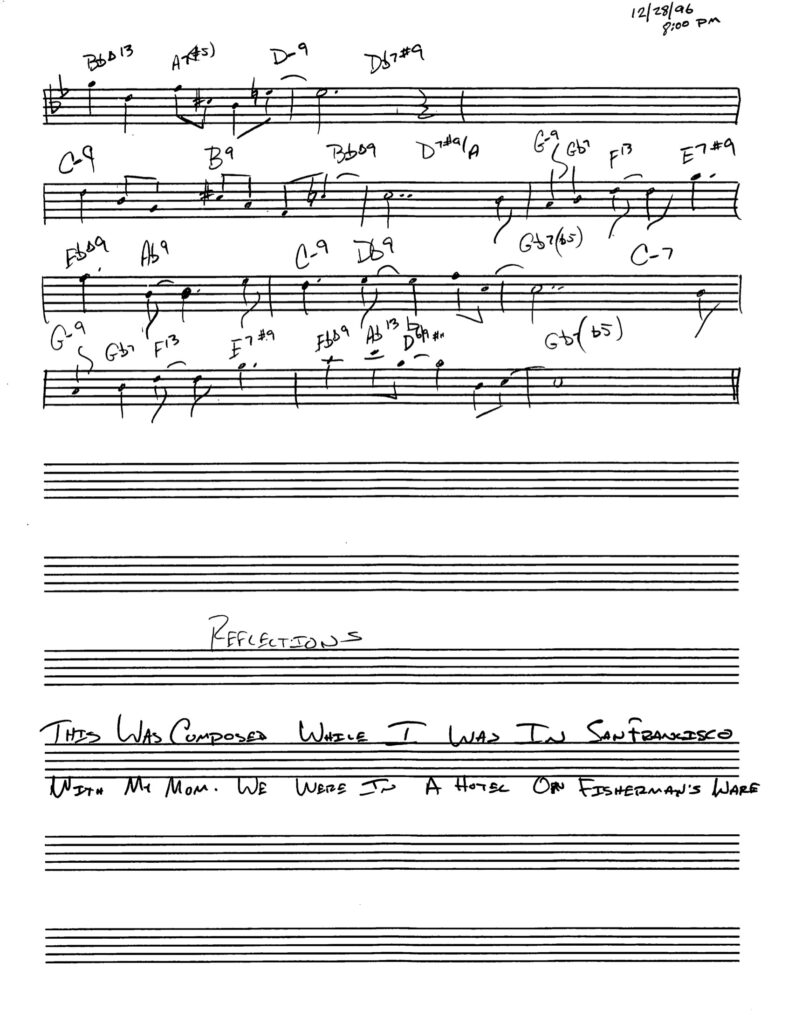 12/28/96
8:00 PM
BbΔ13 A7(#5) D-9 Db7#9
C-9 B9 BbΔ9 D7#9/A G-9 Gb7 F13 E7#9
EbΔ9 Ab9 C-9 Db9 Gb7(b5) C-7
G-9 Gb7 F13 E7#9 EbΔ9 Ab13 Gb7(b5)
REFLECTIONS
THIS WAS COMPOSED WHILE I WAS IN SAN FRANCISCO
WITH MY MOM. WE WERE IN A HOTEL ON FISHERMAN'S WARE